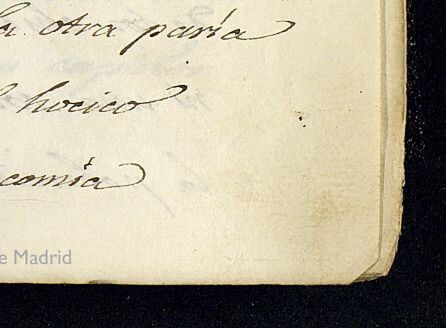 la otra paría
hocico
comía
e Madrid